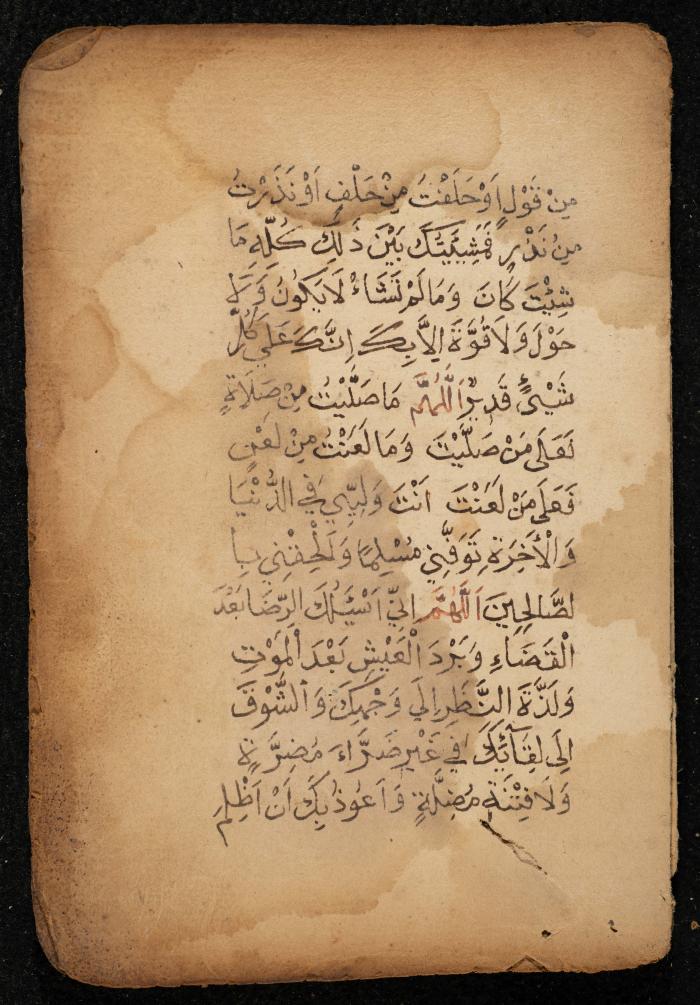 مِنْ قَوْلٍ اَوْحَلَفْتَ مِنْ حَلْفٍ اَوْنَذَرْتُ
مِنْ نَذْرٍ فَمَشِيَّتُكَ بَيْنَ ذٰلِكَ كُلِّهِ مَا
شِئْتَ كَانَ وَمَا لَمْ تَشَاءْ لَا يَكُونُ وَلَا
حَوْلَ وَلَا قُوَّةَ اِلَّا بِكَ اِنَّكَ عَلَي كُلِّ
شَيْئٍ قَدِيرٌ اَللّٰهُمَّ مَا صَلَّيْتُ مِنْ صَلَاةٍ
فَعَلَى مَنْ صَلَّيْتَ وَمَا لَعَنْتُ مِنْ لَعْنٍ
فَعَلَى مَنْ لَعَنْتَ اَنْتَ وَلِيِّي فِي الدُّنْيَا
وَالْأَخِرَةِ تَوَفَّنِي مُسْلِمًا وَلْحِقْنِي بِا
لصَّالِحِينَ اَللّٰهُمَّ اِنِّي اَسْئَلُكَ الرِّضَا بَعْدَ
الْقَضَاءِ وَبَرْدَ الْعَيْشِ بَعْدَ الْمَوْتِ
وَلَذَّةَ النَّظَرِ اِلَي وَجْهِكَ وَالشَّوْقَ
اِلَى لِقَآئِكَ فِي غَيْرِ ضَرَّاءَ مُضِرَّةٍ
وَلَا فِتْنَةٍ مُضِلَّةٍ وَاَعُوذُ بِكَ اَنْ اَظْلِمَ